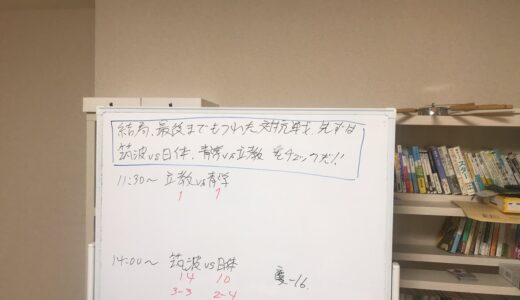 結局、最後までもつれた対抗戦、先ずは
筑波vs日体、青学vs立教をチェックだ!!
11:30〜 立教vs青学
1 1
14:00〜 筑波vs日体
14 10
-16
3-3 2-4